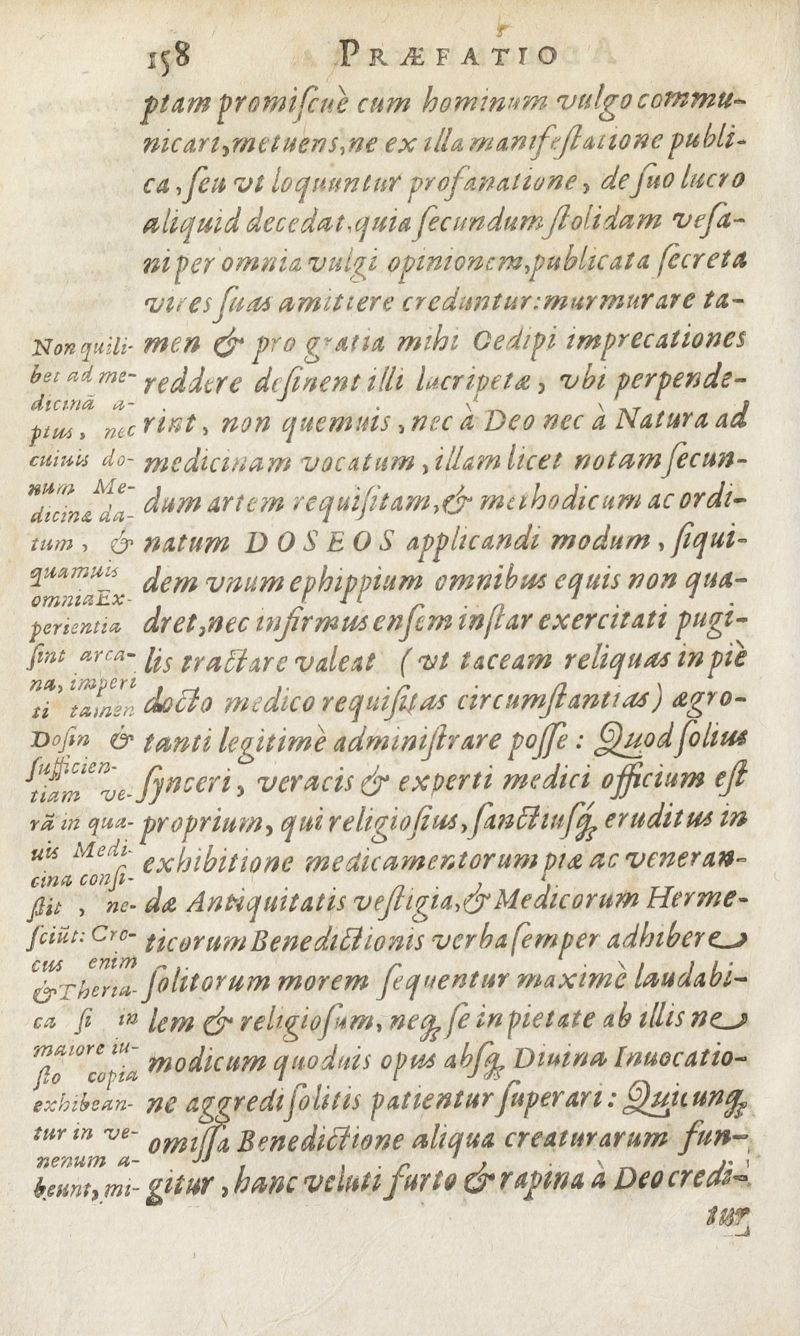 158 PRÆFATIO
ptam promiſcuè cum hominum vulgo commu-
nicari, metuens, ne ex illa manifeſtatione publi-
ca, ſeu vt loquuntur profanatione, de ſuo lucro
aliquid decedat, quia ſecundum ſtolidam veſa-
ni per omnia vulgi opinionem, publicata ſecreta
vires ſuas amittere creduntur: murmurare ta-
men & pro gratia mihi Oedipi imprecationes
reddere deſinent illi lucripetæ, vbi perpende-
rint, non quemuis, nec à Deo nec à Natura ad
medicinam vocatum, illam licet notam ſecun-
dum artem requiſitam, & methodicum ac ordi-
natum DOSEOS applicandi modum, ſiqui-
dem vnum ephippium omnibus equis non qua-
dret, nec infirmus enſem inſtar exercitati pugi-
lis tractare valeat (vt taceam reliquas in piè
docto medico requiſitas circumſtantias) ægro-
tanti legitimè adminiſtrare poſſe: Quod ſolius
ſynceri, veracis & experti medici officium eſt
proprium, qui religioſius, ſanctiuſq́; eruditus in
exhibitione medicamentorum piæ ac veneran-
dæ Antiquitatis veſtigia, & Medicorum Herme-
ticorum Benedictionis verba ſemper adhibere
ſolitorum morem ſequentur maximè laudabi-
lem & religioſum, neq; ſe in pietate ab illis ne
modicum quoduis opus abſq; Diuina Inuocatio-
ne aggredi ſolitis patientur ſuperari: Quicunq;
omiſſa Benedictione aliqua creaturarum fun-
gitur, hanc veluti furto & rapina à Deo credi-
tur
Non quili-
bet ad me-
dicinã a-
ptus, nec
cuiuis do-
num Me-
dicinæ da-
tum, &
quamuis
omnia Ex-
perientia
ſint arca-
na, imperi
ti tamen
Doſin &
ſufficien-
tiam ve-
rã in qua-
uis Medi-
cina conſi-
ſtit, ne-
ſciũt: Cro-
cus enim
& Theria-
ca ſi in
maiore iu-
ſto copia
exhibean-
tur in ve-
nenum a-
beunt, mi-